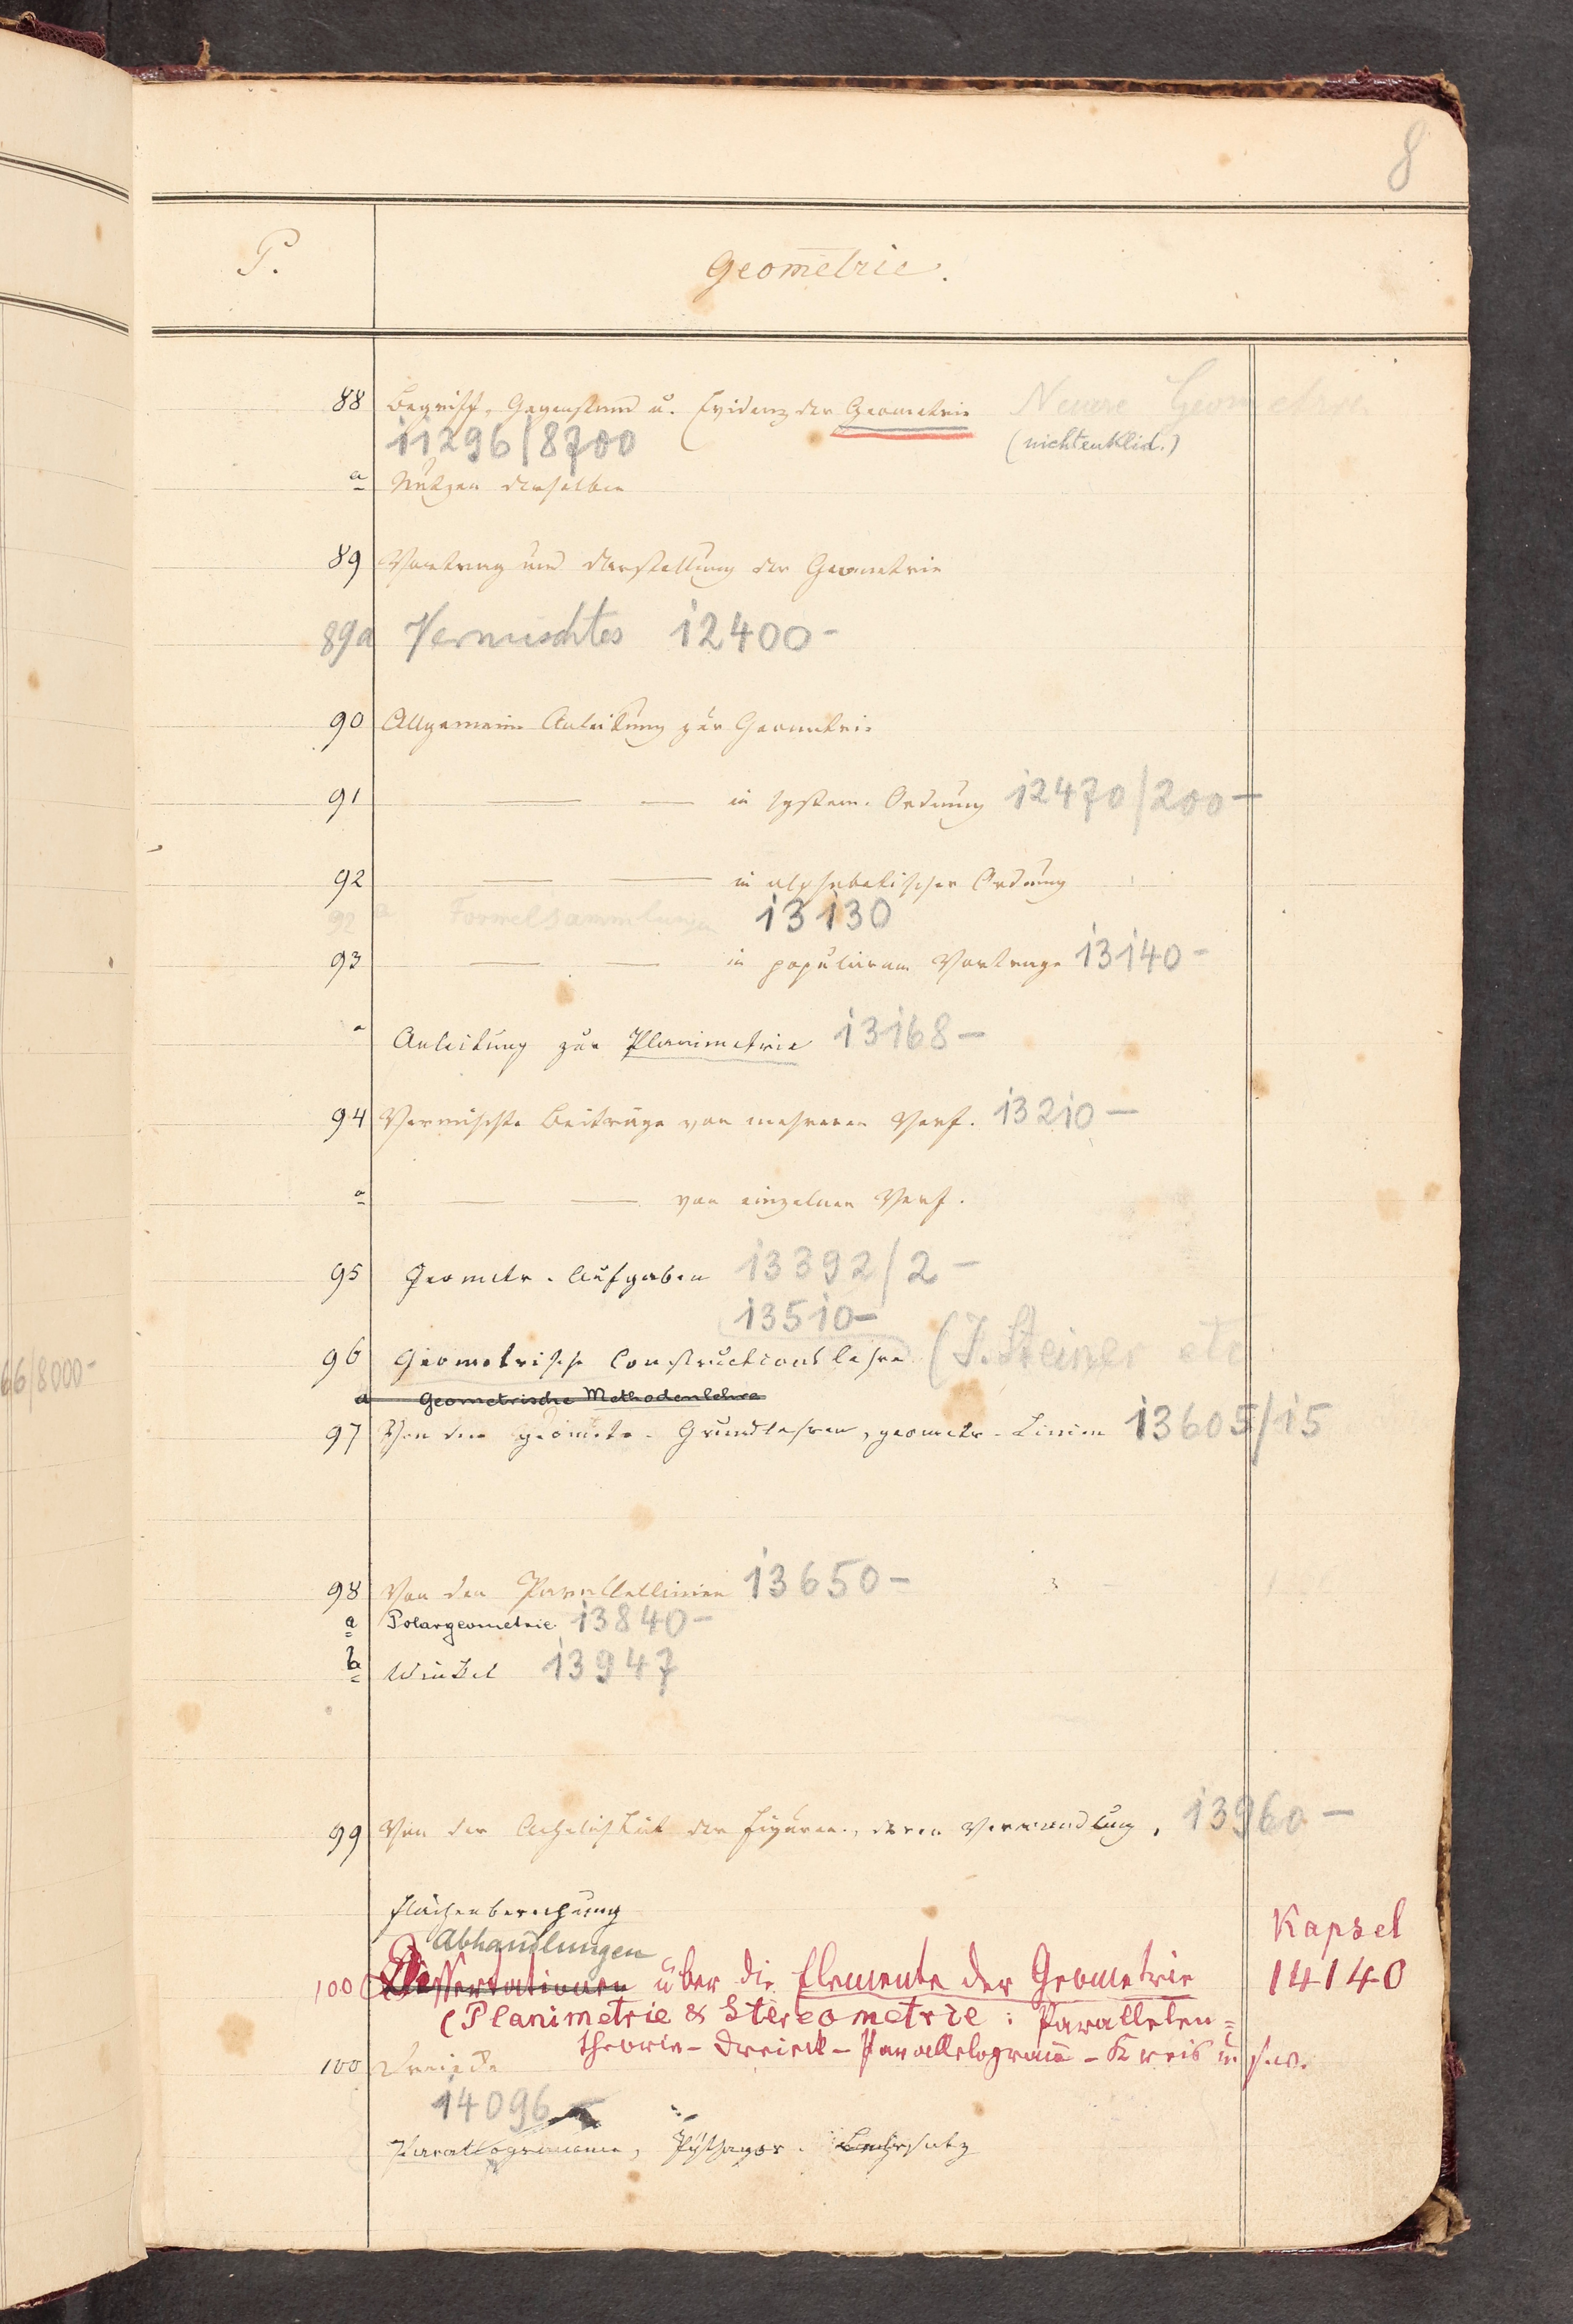 8
P. Geometrie.
88 Begriff, Gegenstand u. Evidenz der Geometrie Neuere Geometrie
11296/8700 (nichteuklid.)
a Nutzen derselben
89 Vortrag und Darstellung der Geometrie
89a Vermischtes 12400-
90 Allgemeine Anleitung zur Geometrie
91 — — in system. Ordnung 12470/200-
92 — — in alphabetischer Ordnung
92 a Formelsammlungen 13130
93 — — in populärem Vortrage 13140-
a Anleitung zur Planimetrie 13168-
94 Vermischte Beiträge von mehreren Verf. 13210-
a — — von einzelnen Verf.
95 Geometr. Aufgaben 13392/2-
13510-
96 Geometrische Constructionslehre (J. Steiner etc
66/8000-
a Geometrische Methodenlehre
97 Von den geometr. Grundlehren, geometr. Linien 13605/15
98 Von den Parallellinien 13650-
a Polargeometrie 13840-
b Winkel 13947
99 Von der Aehnlichkeit der Figuren, deren Verwandlung, 13960-
Flächenberechnung
Abhandlungen Kapsel
100 Dissertationen über die Elemente der Geometrie 14140
(Planimetrie & Stereometrie: Parallelen=
theorie - Dreieck - Parallelogramm - Kreis u s.w.
100 Dreiecke
14096
Parallogramme, Pythagor. Lehrsatz